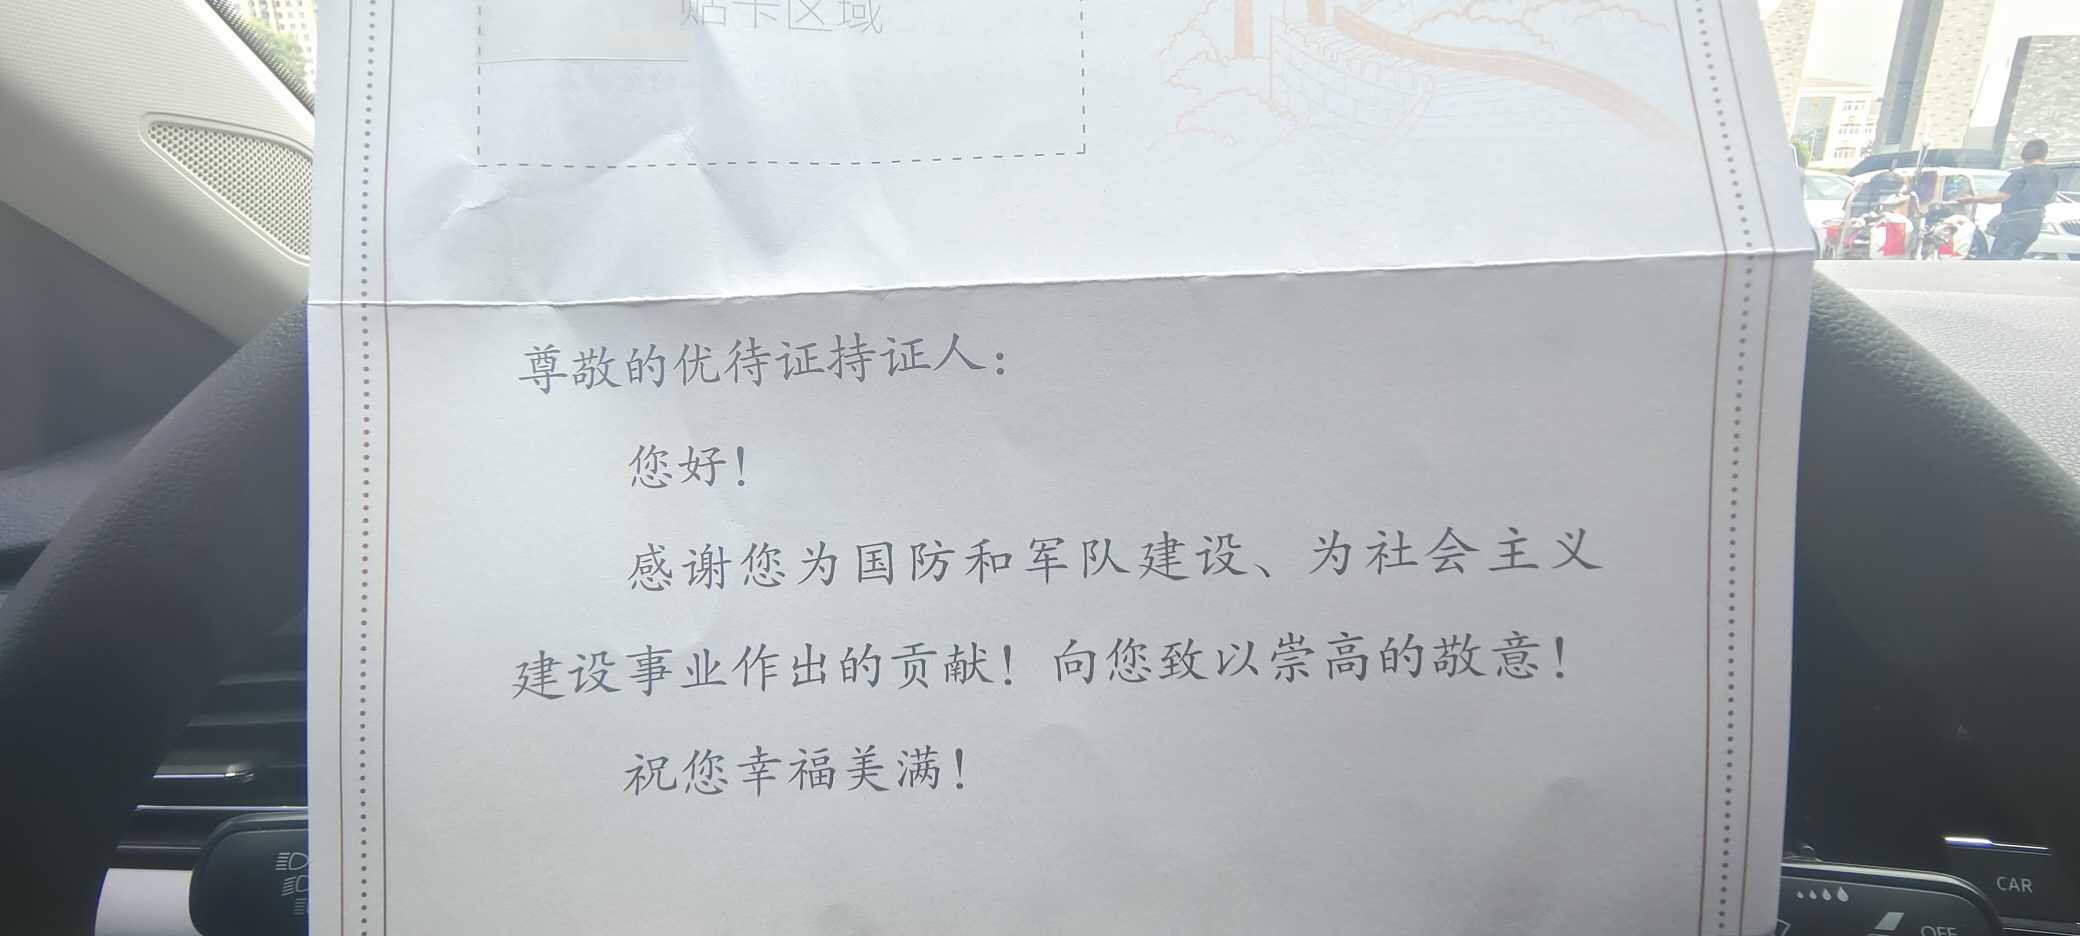 贴卡区域
尊敬的优待证持证人：
您好！
感谢您为国防和军队建设、为社会主义
建设事业作出的贡献！向您致以崇高的敬意！
祝您幸福美满！
CAR
OFF